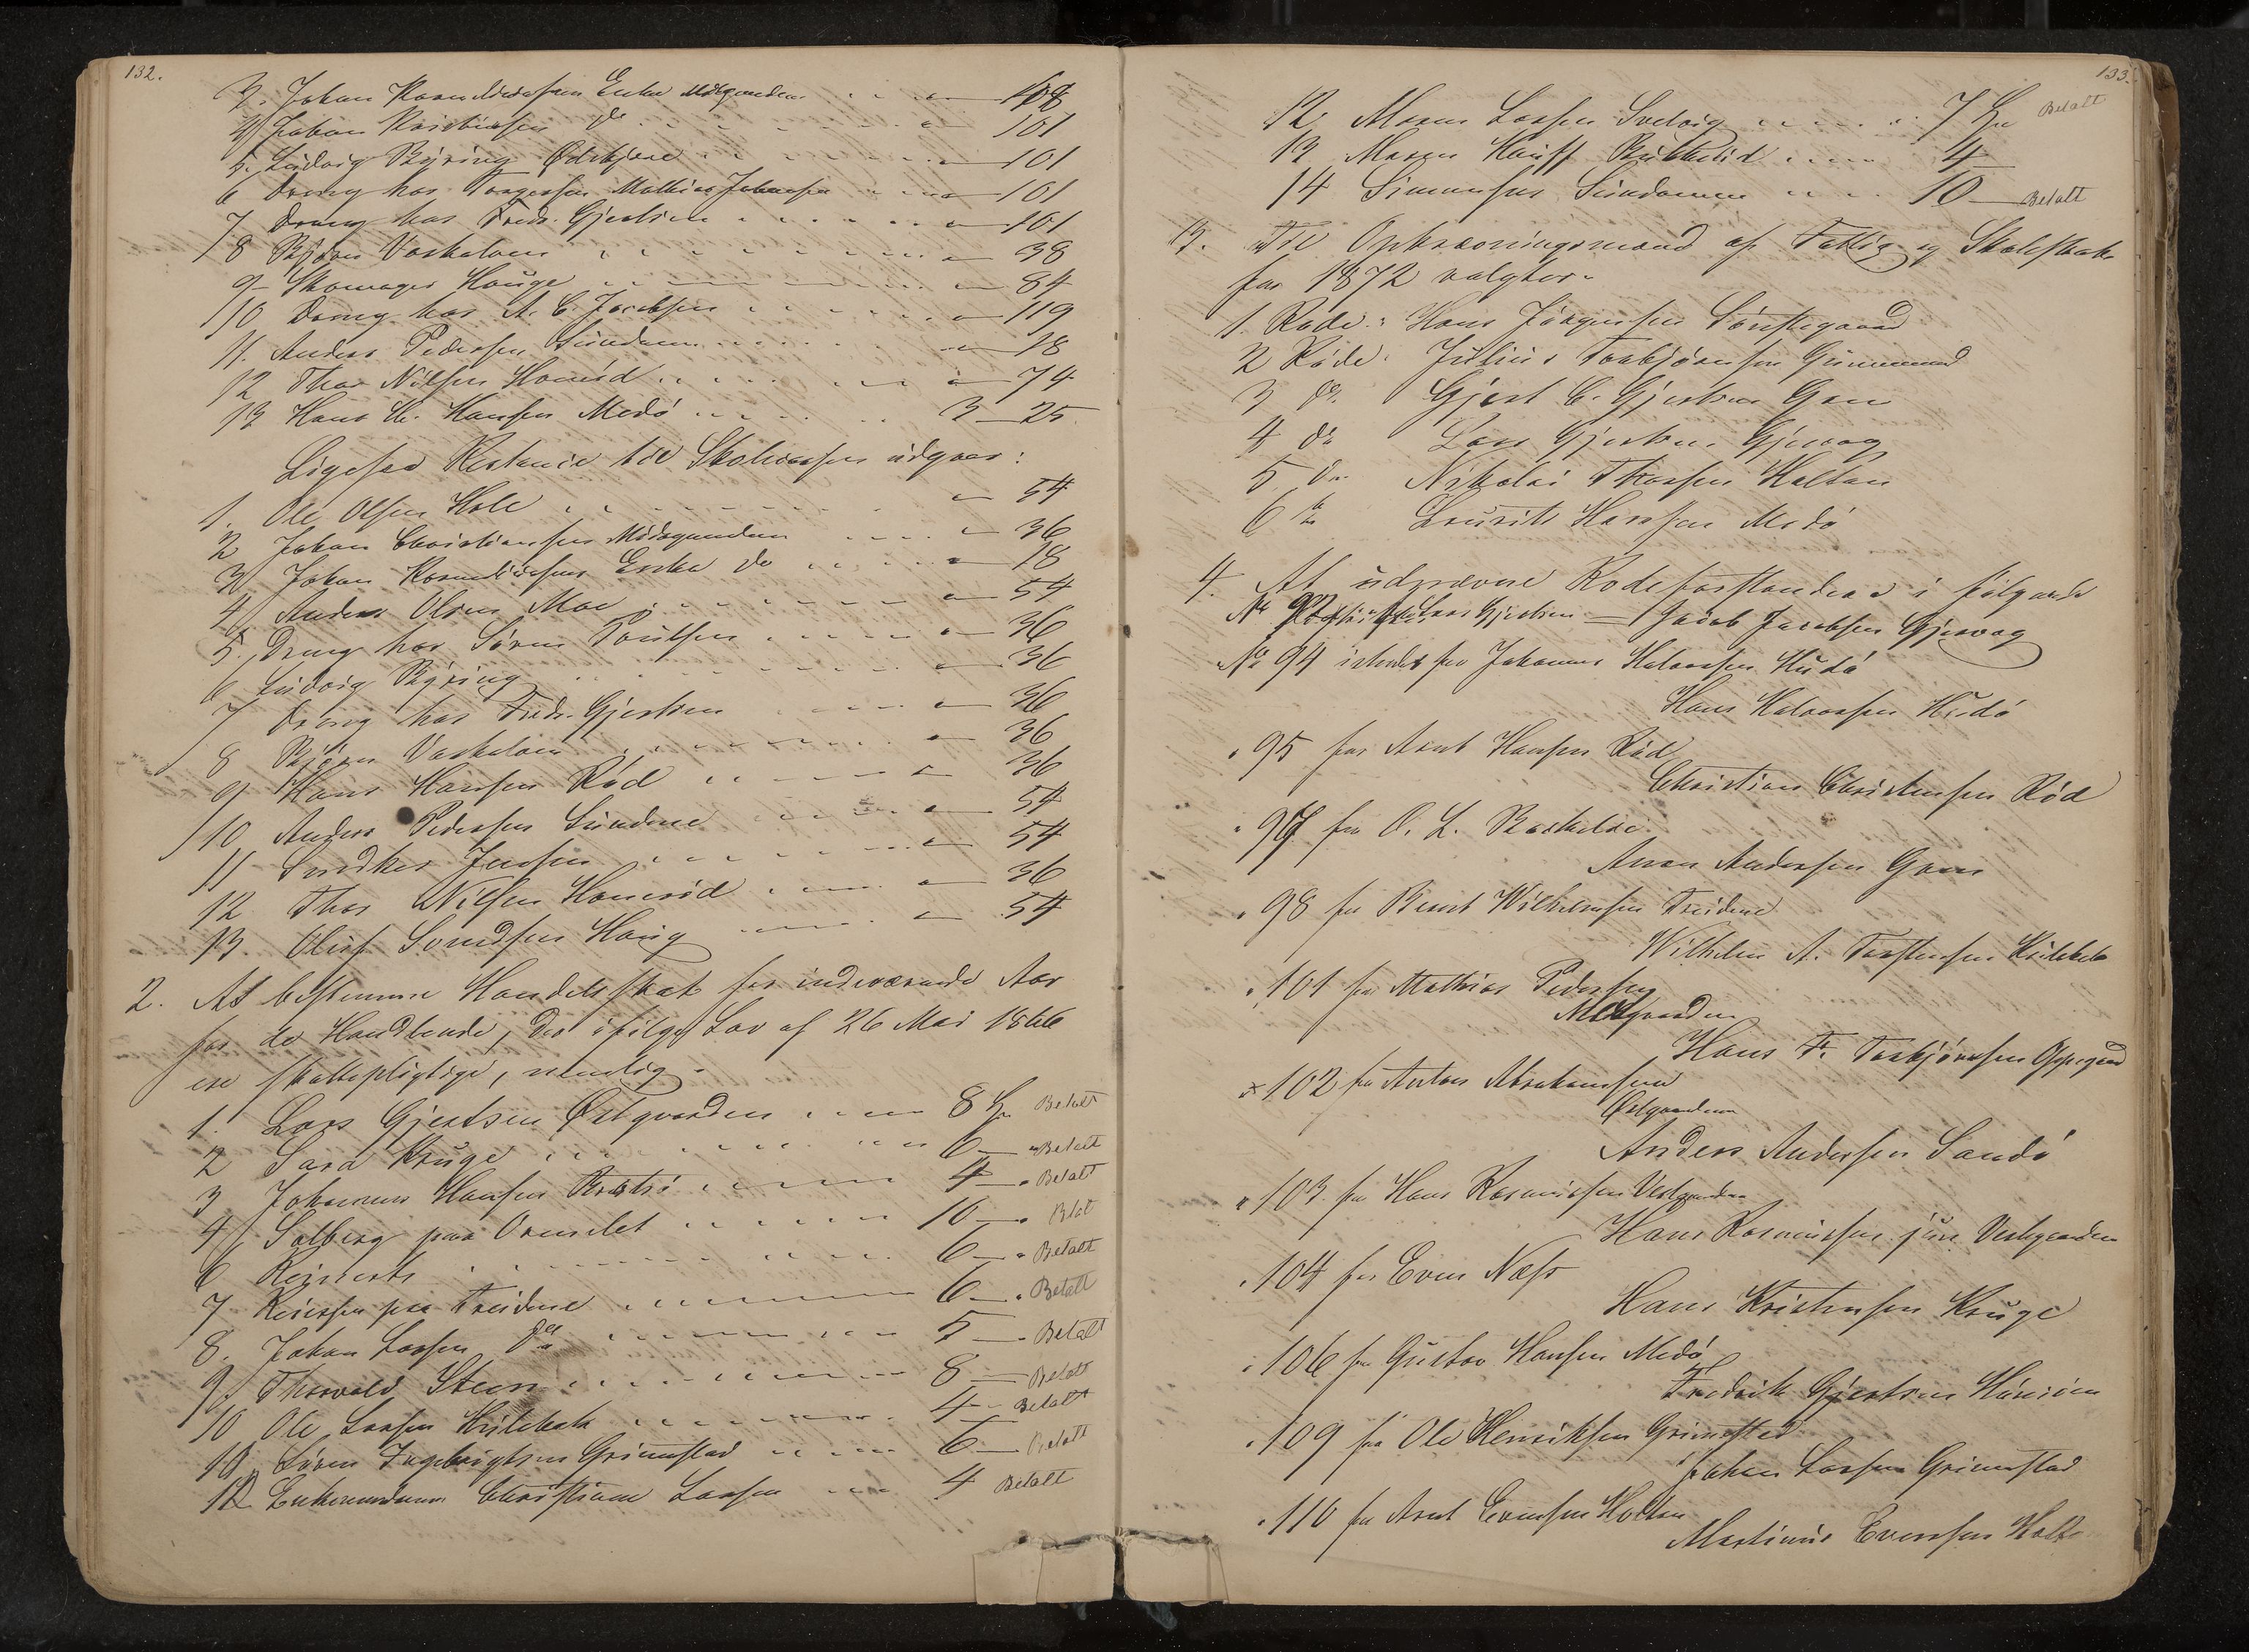 132.
3. Johan Enke
4 Johan Kristiansen do 101
5. Ludvig Byring 101
6 Dreng hos Torgersen Mathias Johansen 101
7 Dreng hos Fredr. Gjertsen 101
8 Bjørn Vaskalven 38
9 Skomager Hauge 84
10 Dreng hos A. C. Jacobsen 119
11. Anders Pedersen Sundene 18
12 Thor Nilsen 74
13 Hans H. Hansen Medø 3 25
Ligesaa Restance til Skolecassen udgaar:
1. Ole Olsen Hole 54
2 Johan Christiansen Midtgaarden 36
3 Johan Enke do 18
4 Anders Olsen Moe 54
5. Dreng hos Søren Poulsen 36
6 Ludvig Byring 36
7 Dreng hos Fredr. Gjertsen 36
8 Bjørn Vaskalven 36
9 Hans Hansen Rød 36
10 Anders Pedersen Sundene 54
11 Snedker Jensen 54
12 Thor Nilsen 36
13. Oluf Svendsen Haug 54
2. At bestemme Handelsskat for indeværende Aar
for de Handlende, der ifølge Lov af 26 Mai 1866
ere skattepligtige, nemlig:
1. Lars Gjertsen Østgaarden 8 Betalt
2 Sara Kruge 6 Betalt
3 Johannes Hansen 4 Betalt
4 Solberg paa Ormelet 10
6 6 Betalt
7 paa Treidene 6 Betalt
8. Johan Larsen do 5 Betalt
9 Thorvald Steen 8 Betalt
10 Ole Larsen Hulebak 4 Betalt
Søren Ingebrigtsen Grimestad 6 Betalt
Enkemadame Christiane Larsen 4 Betalt
133.
12. Larsen Svelvig 7 Betalt
13 4
14 Simonsen Sundene 10 Betalt
3. Til Opkrævningsmænd af Fattig og Skoleskat
for 1872 valgtes:
1. Rode: Hans Jørgensen
2 Rode: Julius Torbjørnsen
3 do Gjert C. Gjertsen
4 do Lars Gjertsen Gjervaag
5 do Nikolai Thorsen Holtan
6 do Lauritz Hansen Medø
4. At udnævne Rodeforstandere i følgende
Lars Gjertsen = Jacob Jacobsen Gjervaag
No 94 istedet for Johannes Halvorsen Hudø
Hans Halvorsen Hudø
" 95 for Arnt Hansen Rød
Christian Christensen Rød
" 97 for O. L.
Andersen
" 98 for Bernt Wilhelmsen Treidene
Wilhelm A. Torstensen Hulebak
" 101 for Mathias Pedersen
Midtgaarden
Hans F. Torbjørnsen Oppegaard
× 102 for Anton Abrahamsen
Østgaarden
Anders Andersen Sandø
" 103. for Hans Rasmussen Vestgaarden
Hans Rasmussen jun. Vestgaarden
" 104 for Even Næss
Hans Kristensen Kruge
" 106 for Gustav Hansen Medø
Fredrik Gjertsen
" 109 for Ole Henriksen Grimestad
Johan Larsen Grimestad
" 110 for Arnt Evensen Holtan
Martinius Evensen